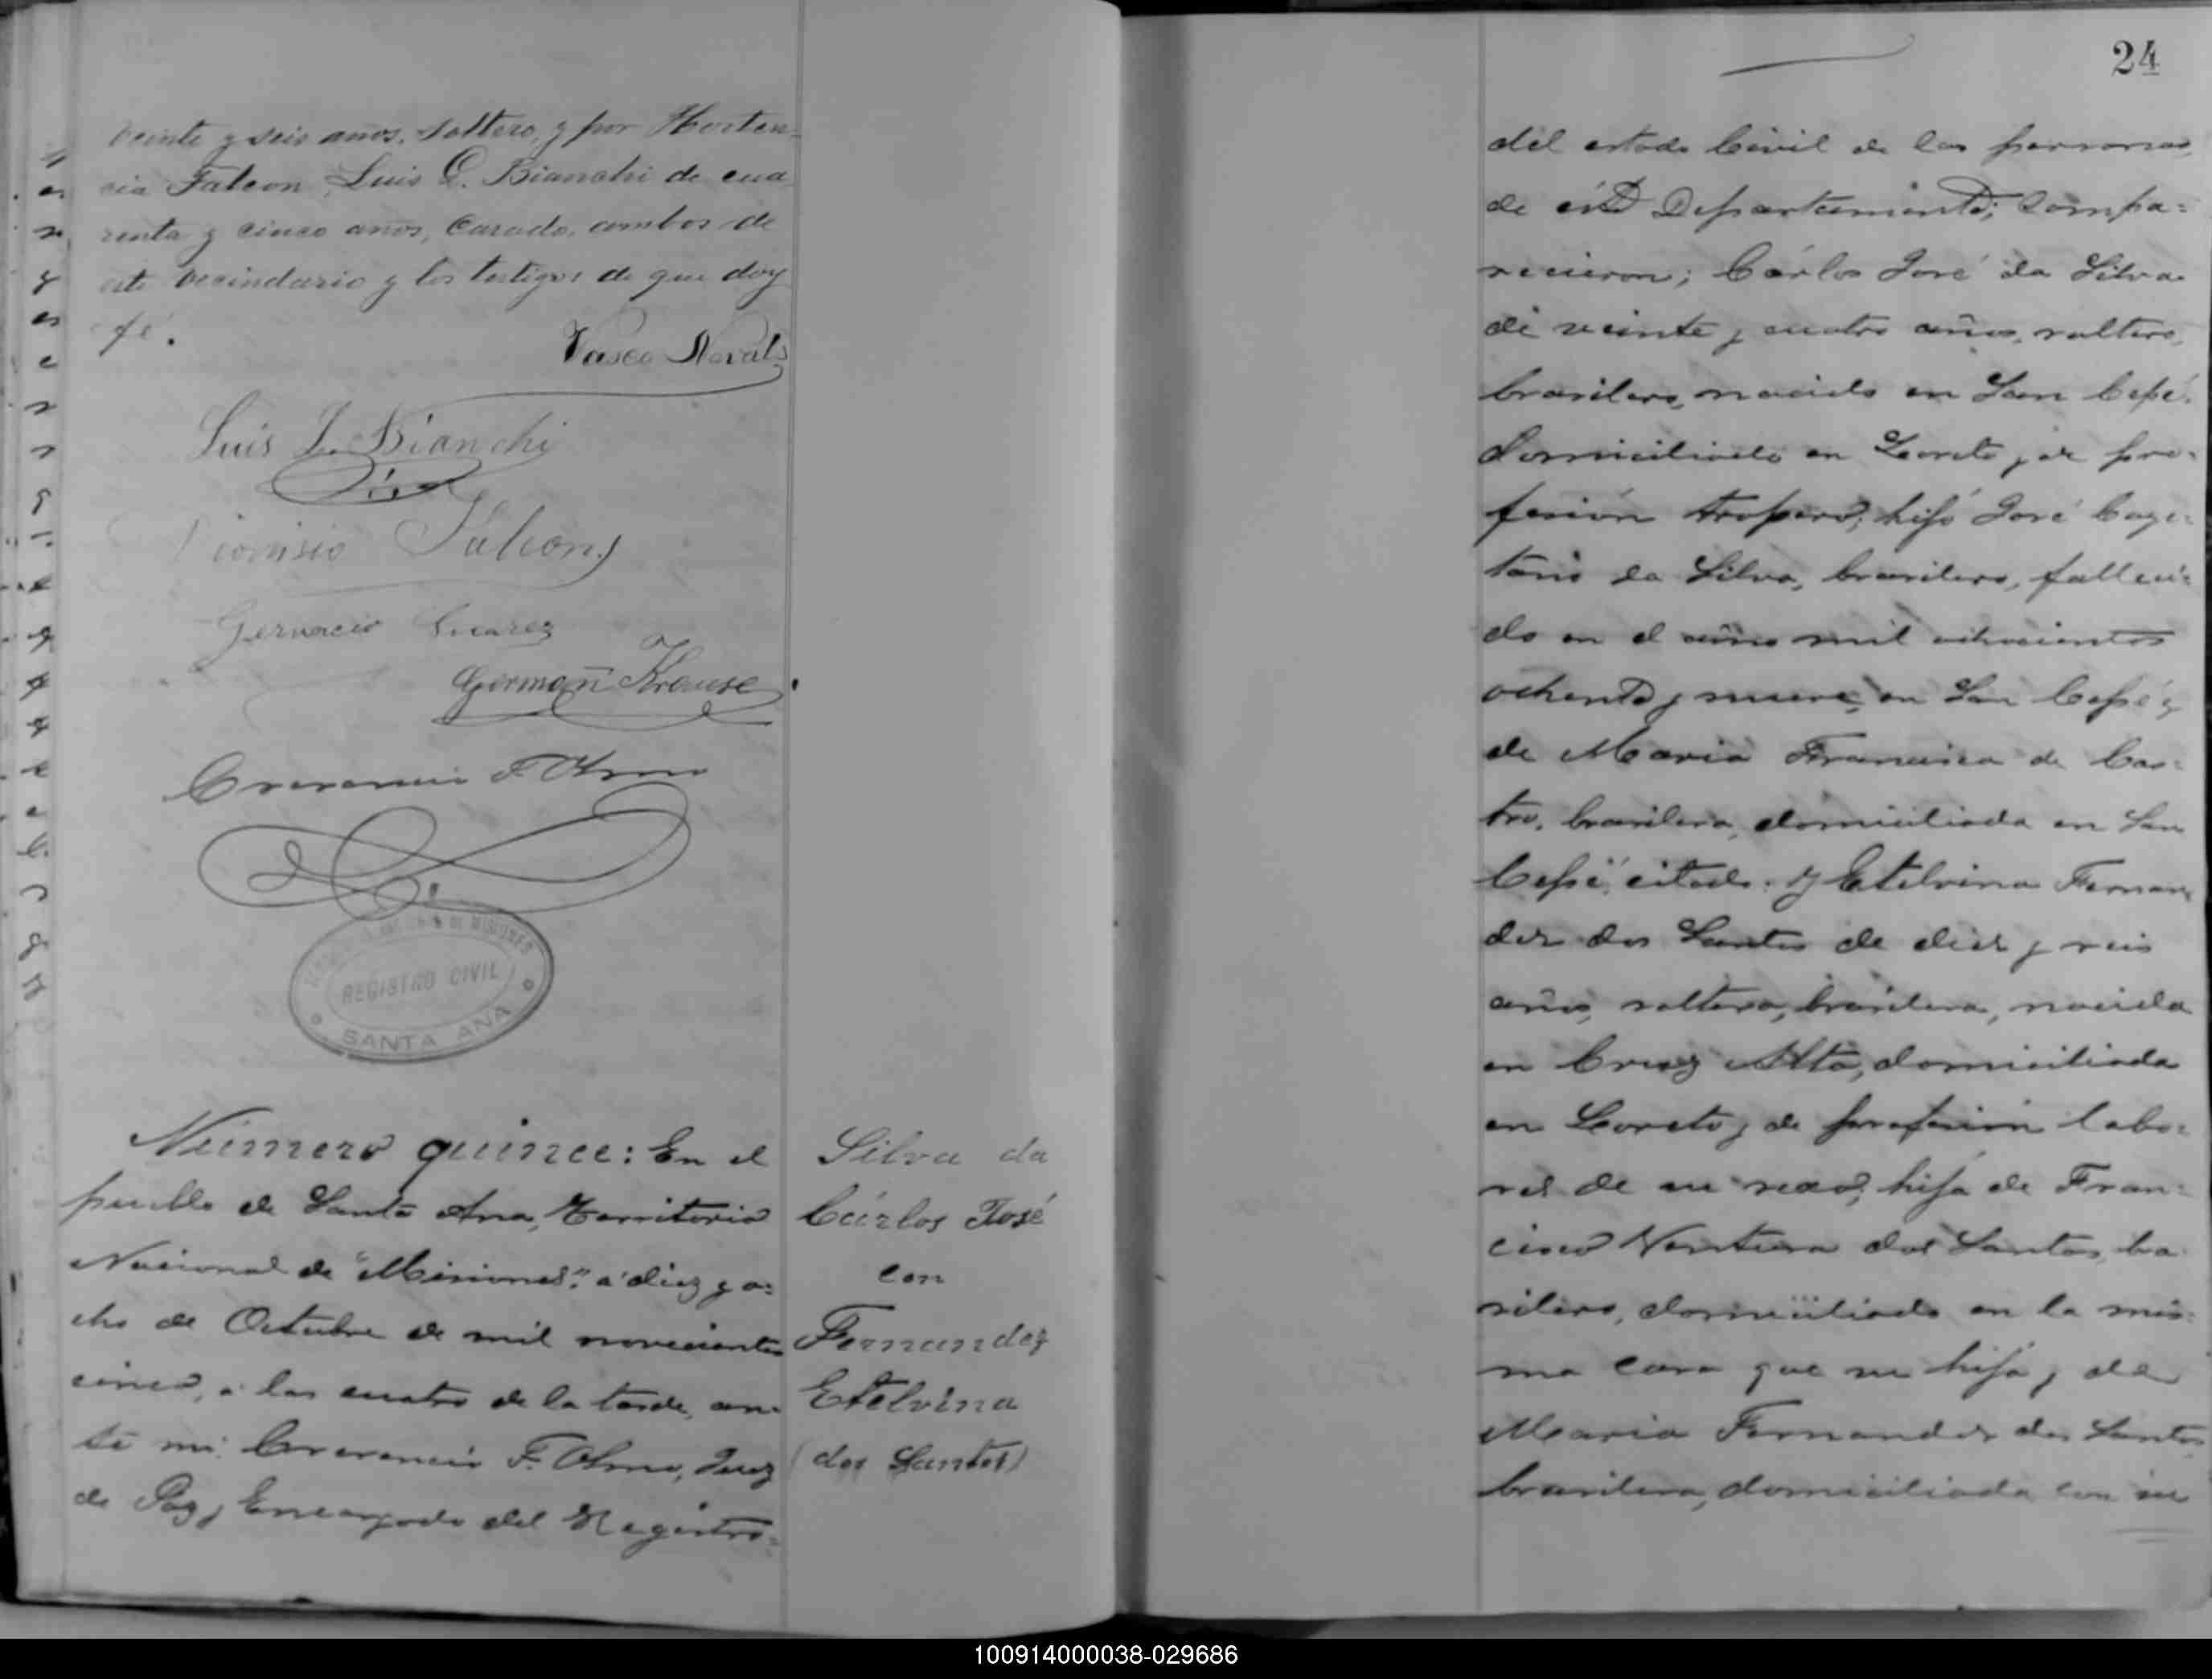 veinte y seis años, soltero, y por Horten-
cia Falcon, Luis L. Bianchi de cua
renta y cinco años, casado, ambos de
este vecindario y los testigos de que doy
fé.
Vasco Novals
Luis L. Bianchi
Dionisio Falcon
Gervacio Suarez
German Krause
Cravancio F. Olmo
DE MISIONES
REGISTRO CIVIL
SANTA ANA
Número quince: En el
pueblo de Santa Ana, Territorio
Nacional de "Misiones", a diez y o=
cho de Octubre de mil novecientos
cinco, a las cuatro de la tarde, an-
te mi: F. Olmo, Juez
de Paz y Encargado del Registro=
Silva da
Cárlos José
con
Fernandez
Etelvina
(dos Santos)
24
del estado Civil de las personas,
de este Departamento; compa=
recieron; Cárlos José da Silva
de veinte y cuatro años, soltero,
brasilero, nacido en San Cepé.
domiciliado en Loreto y de pro=
fesión tropero, hijo José Caye=
tano da Silva, brasilero, falleci=
do en el año mil ochocientos
ochenta y nueve, en San Cepé y
de Maria Francisca de Cas=
tro, brasilera, domiciliada en San
Cepé, citado. y Etelvina Fernan
dez dos Santos de diez y seis
años, soltera, brasilera, nacida
en Cruz Alta, domiciliada
en Loreto y de profesión labo=
res de su sexo, hija de Fran=
cisco Ventura dos Santos, bra
silero, domiciliado en la mis=
ma casa que su hija y de
Maria Fernandez dos Santos
brasilera, domiciliada con su
100914000038-029686